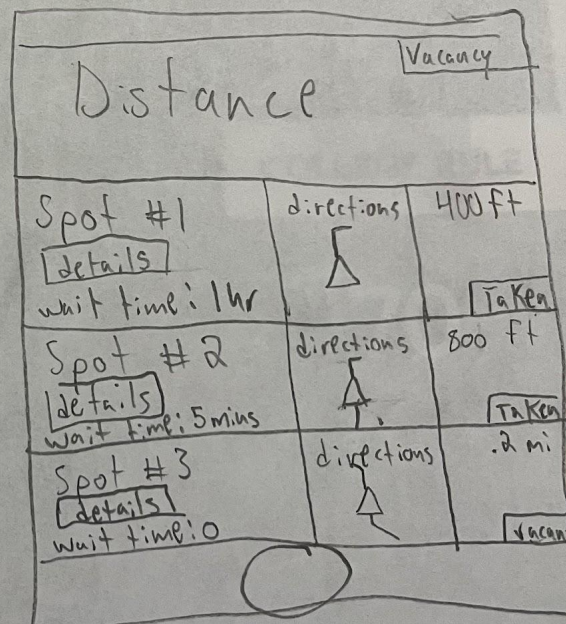 Vacancy
Distance
Spot #1
details
wait time: 1hr
directions
400 ft
Taken
Spot #2
details
wait time: 5 mins
directions
800 ft
Taken
Spot #3
details
wait time: 0
directions
.2 mi
vacan